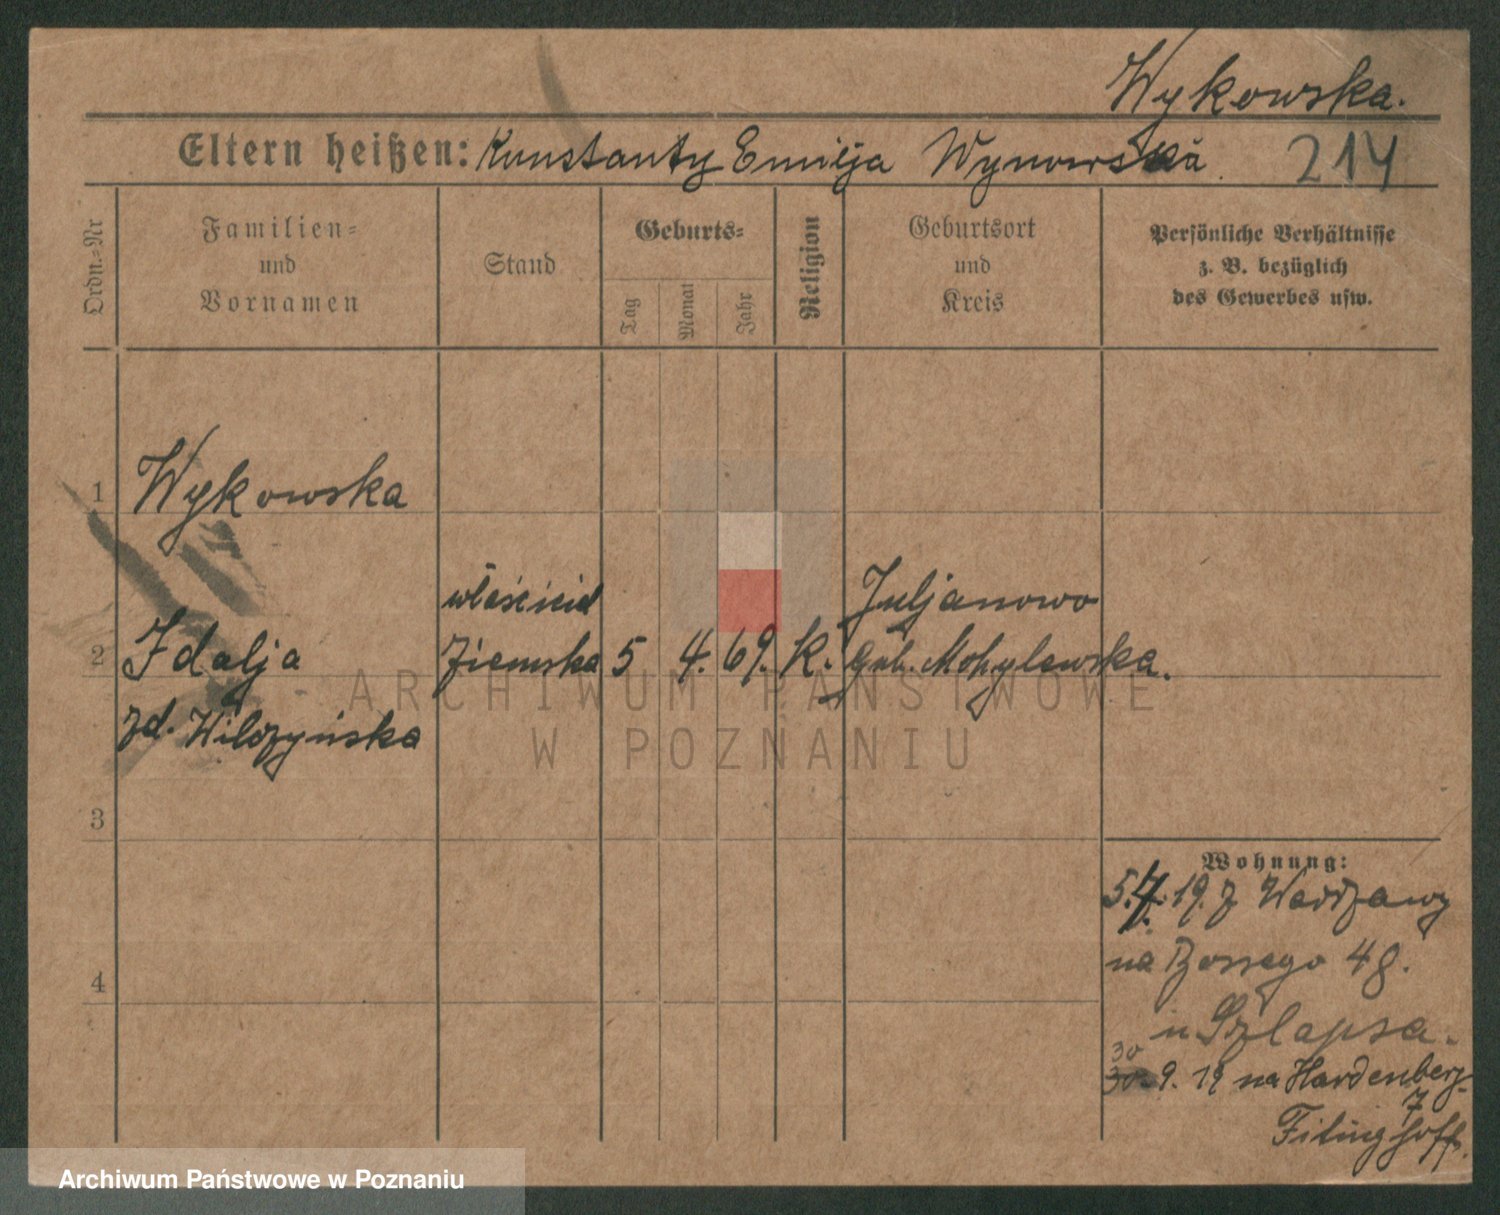 Wykowska.
Eltern heißen: Konstanty Emilja Wynowska.
214
Ordn.-Nr
Familien=
und
Vornamen
Stand
Geburts=
Tag
Monat
Jahr
Religion
Geburtsort
und
Kreis
Persönliche Verhältnisse
z. B. bezüglich
des Gewerbes usw.
1 Wykowska
właściciel Juljanowo
2 Idalja ziemska 5 4. 69. K. gub. Mohylewska.
zd. Wilczyńska
3
4
Wohnung:
5.7. 19. z Warszawy
na 48.
u Szlapsa.
30
30. 9. 19 na Hardenberg-
7
Filinghoff.
ARCHIWUM PAŃSTWOWE
W POZNANIU
Archiwum Państwowe w Poznaniu